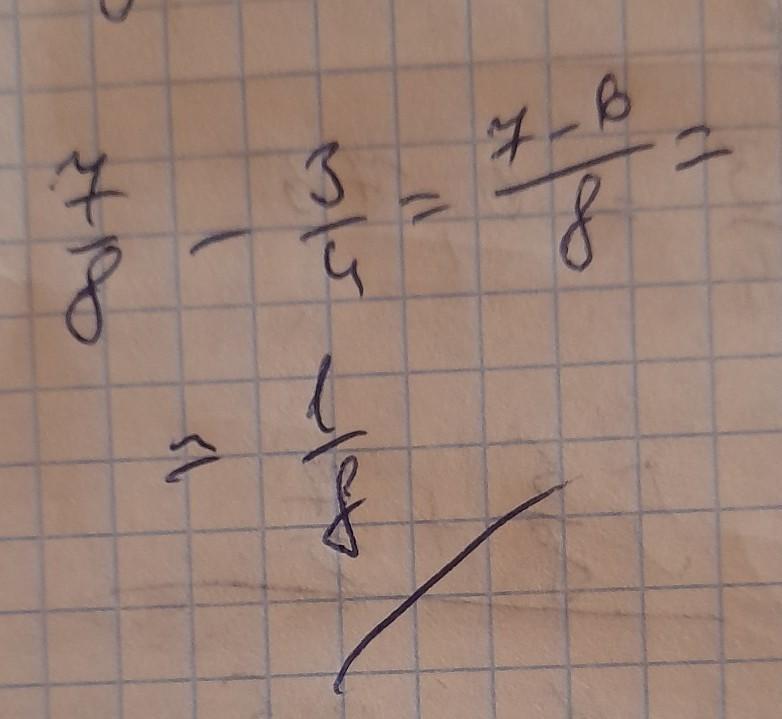 7/8 - 3/4 = (7 - 6)/8 =
= 1/8